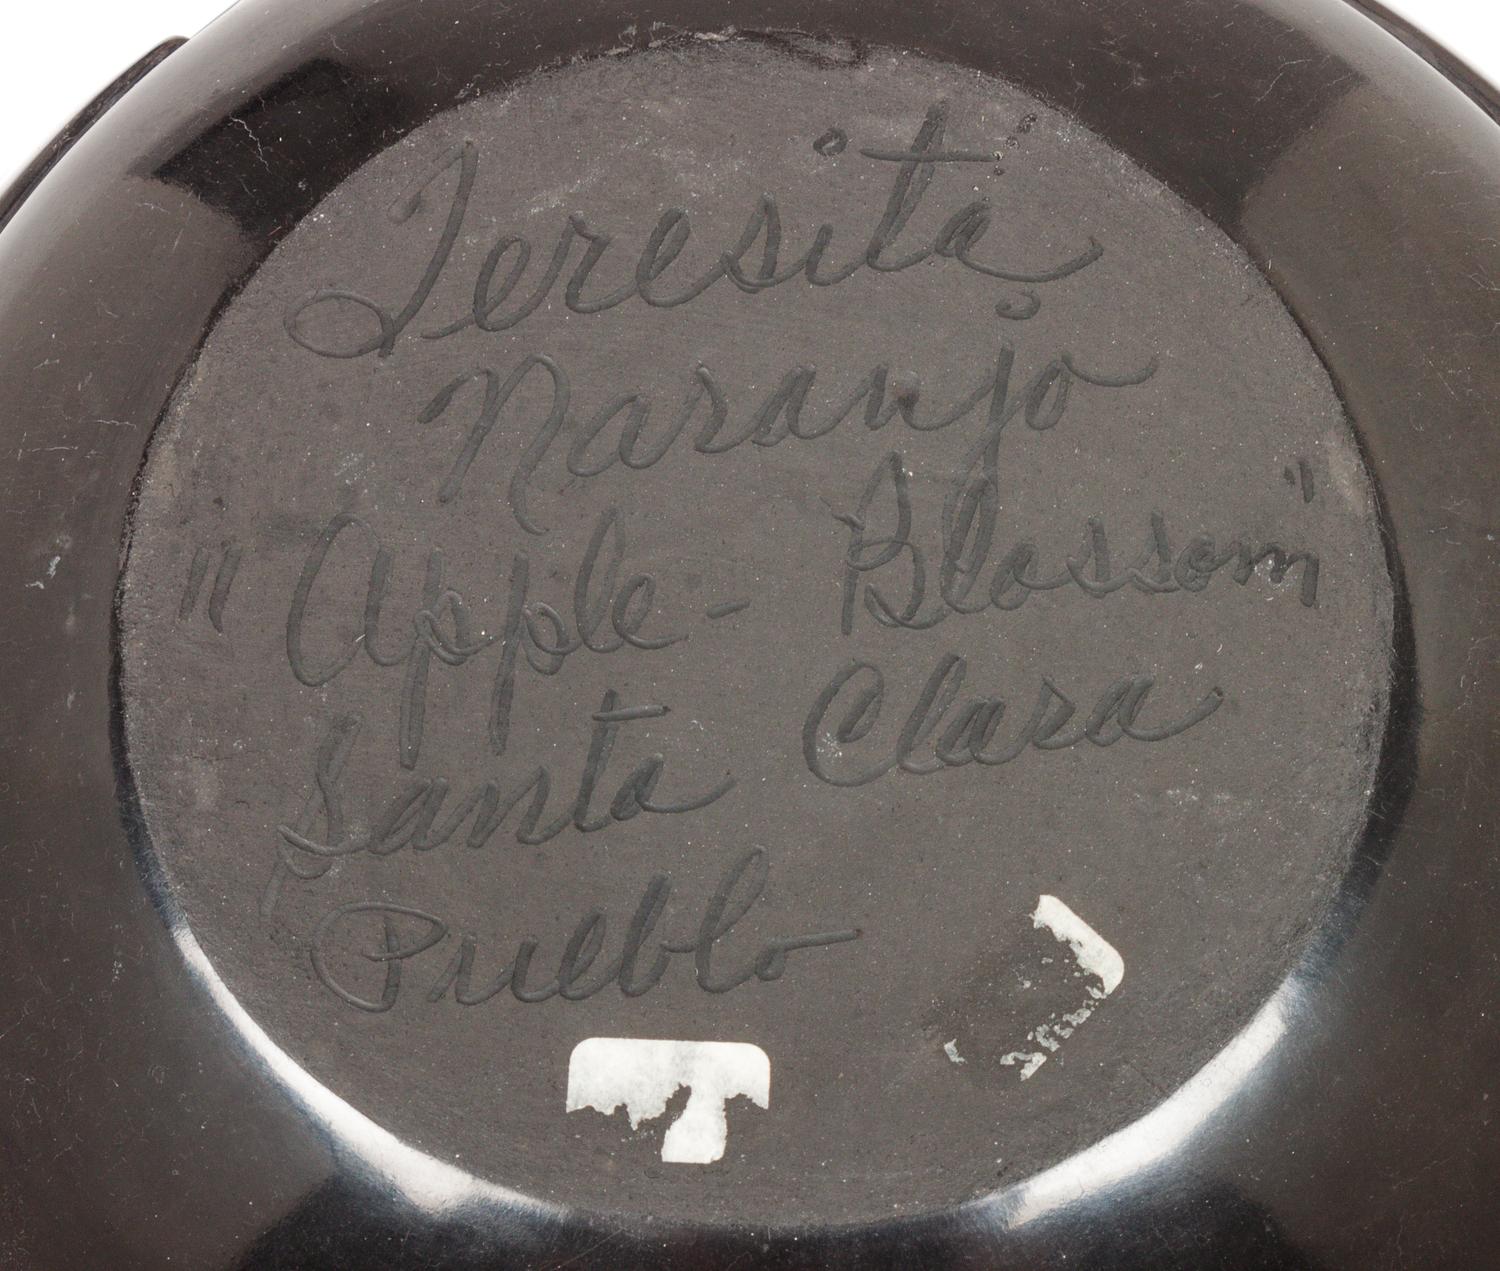 Teresita
Naranjo
"Apple - Blossom"
Santa Clara
Pueblo